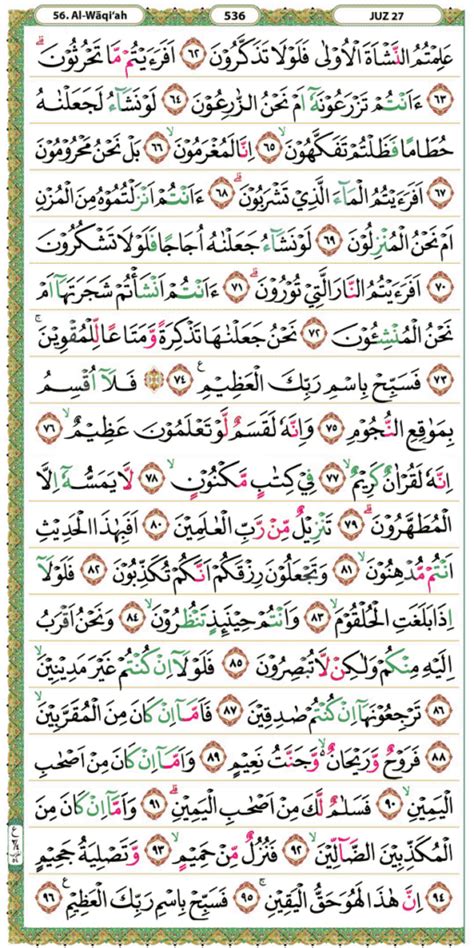 56. Al-Wāqi‘ah 536 JUZ 27
عَلِمْتُمُ النَّشْاَةَ الْاُوْلٰى فَلَوْلَا تَذَكَّرُوْنَ ٦٢ اَفَرَءَيْتُمْ مَّا تَحْرُثُوْنَۗ
٦٣ ءَاَنْتُمْ تَزْرَعُوْنَهٗٓ اَمْ نَحْنُ الزّٰرِعُوْنَ ٦٤ لَوْ نَشَاۤءُ لَجَعَلْنٰهُ
حُطَامًا فَظَلْتُمْ تَفَكَّهُوْنَۙ ٦٥ اِنَّا لَمُغْرَمُوْنَۙ ٦٦ بَلْ نَحْنُ مَحْرُوْمُوْنَ
٦٧ اَفَرَءَيْتُمُ الْمَاۤءَ الَّذِيْ تَشْرَبُوْنَۗ ٦٨ ءَاَنْتُمْ اَنْزَلْتُمُوْهُ مِنَ الْمُزْنِ
اَمْ نَحْنُ الْمُنْزِلُوْنَ ٦٩ لَوْ نَشَاۤءُ جَعَلْنٰهُ اُجَاجًا فَلَوْلَا تَشْكُرُوْنَ
٧٠ اَفَرَءَيْتُمُ النَّارَ الَّتِيْ تُوْرُوْنَۗ ٧١ ءَاَنْتُمْ اَنْشَأْتُمْ شَجَرَتَهَآ اَمْ
نَحْنُ الْمُنْشِـُٔوْنَ ٧٢ نَحْنُ جَعَلْنٰهَا تَذْكِرَةً وَّمَتَاعًا لِّلْمُقْوِيْنَۚ
٧٣ فَسَبِّحْ بِاسْمِ رَبِّكَ الْعَظِيْمِ ࣖ ٧٤ ۞ فَلَآ اُقْسِمُ
بِمَوٰقِعِ النُّجُوْمِ ٧٥ وَاِنَّهٗ لَقَسَمٌ لَّوْ تَعْلَمُوْنَ عَظِيْمٌۙ ٧٦
اِنَّهٗ لَقُرْاٰنٌ كَرِيْمٌۙ ٧٧ فِيْ كِتٰبٍ مَّكْنُوْنٍۙ ٧٨ لَّا يَمَسُّهٗٓ اِلَّا
الْمُطَهَّرُوْنَۗ ٧٩ تَنْزِيْلٌ مِّنْ رَّبِّ الْعٰلَمِيْنَ ٨٠ اَفَبِهٰذَا الْحَدِيْثِ
اَنْتُمْ مُّدْهِنُوْنَۙ ٨١ وَتَجْعَلُوْنَ رِزْقَكُمْ اَنَّكُمْ تُكَذِّبُوْنَ ٨٢ فَلَوْلَآ
اِذَا بَلَغَتِ الْحُلْقُوْمَۙ ٨٣ وَاَنْتُمْ حِيْنَىِٕذٍ تَنْظُرُوْنَۙ ٨٤ وَنَحْنُ اَقْرَبُ
اِلَيْهِ مِنْكُمْ وَلٰكِنْ لَّا تُبْصِرُوْنَ ٨٥ فَلَوْلَآ اِنْ كُنْتُمْ غَيْرَ مَدِيْنِيْنَۙ
٨٦ تَرْجِعُوْنَهَآ اِنْ كُنْتُمْ صٰدِقِيْنَ ٨٧ فَاَمَّآ اِنْ كَانَ مِنَ الْمُقَرَّبِيْنَۙ
٨٨ فَرَوْحٌ وَّرَيْحَانٌ ەۙ وَّجَنَّتُ نَعِيْمٍ ٨٩ وَاَمَّآ اِنْ كَانَ مِنْ اَصْحٰبِ
الْيَمِيْنِۙ ٩٠ فَسَلٰمٌ لَّكَ مِنْ اَصْحٰبِ الْيَمِيْنِۗ ٩١ وَاَمَّآ اِنْ كَانَ مِنَ
الْمُكَذِّبِيْنَ الضَّاۤلِّيْنَۙ ٩٢ فَنُزُلٌ مِّنْ حَمِيْمٍۙ ٩٣ وَّتَصْلِيَةُ جَحِيْمٍ
٩٤ اِنَّ هٰذَا لَهُوَ حَقُّ الْيَقِيْنِۚ ٩٥ فَسَبِّحْ بِاسْمِ رَبِّكَ الْعَظِيْمِ ࣖ ٩٦